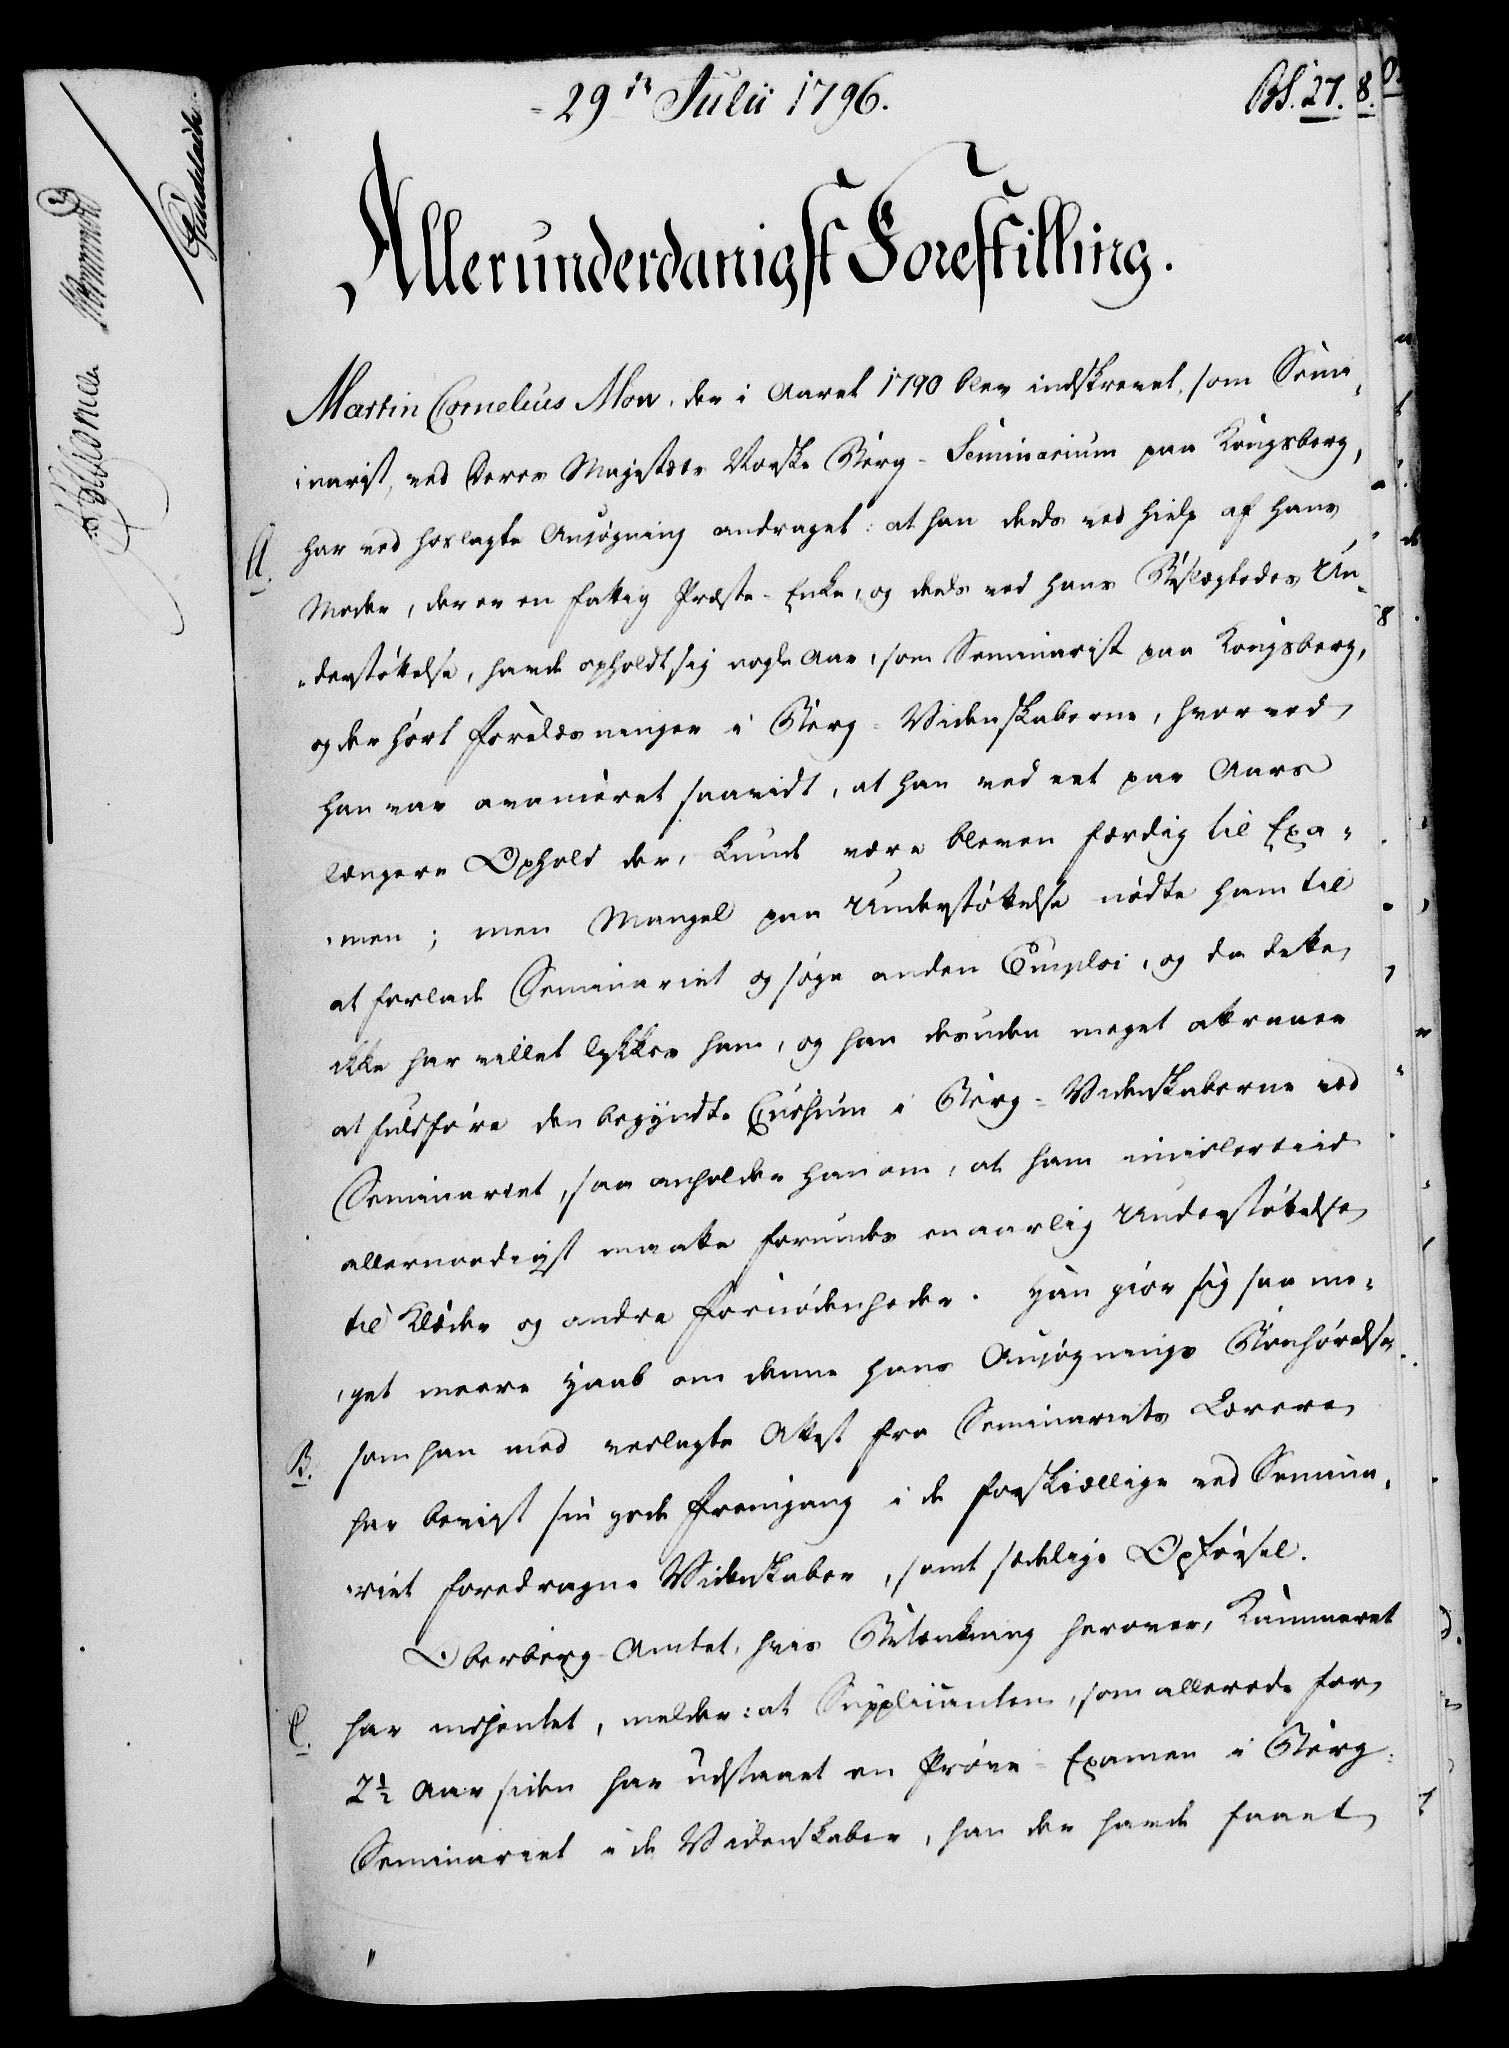 29de Julii 1796.
BS. 27. 8.
Allerunderdanigst Forestilling.
Martin Cornelius Mow, der i Aaret 1790 blev indskrevet, som Semi-
narist, ved Deres Majestæts Norske Berg-Seminarium paa Kongsberg,
A.
har ved hoslagte Ansøgning andraget: at han deels ved Hielp af hans
Moder, der er en fattig Præste-Enke, og deels ved hans Beslægtedes Un-
derstøttelse, havde opholdt sig nogle Aar, som Seminarist paa Kongsberg,
og der hørt Forelæsninger i Berg-Videnskaberne, hvorved
han var avanceret saavidt, at han ved eet par Aars
længere Ophold der, kunde være bleven færdig til Exa-
men; men Mangel paa Understøttelse nødte ham til
at forlade Seminariet og søge anden Emploi, og da dette
ikke har villet lykkes ham, og han desuden meget attraaer
at fuldføre den begyndte Cursum i Berg-Videnskaberne ved
Seminariet, saa anholder han om, at ham imidlertid
allernaadigst maatte forundes en aarlig Understøttelse
til Klæder og andre Fornødenheder. Han giør sig saa me-
get meere Haab om denne hans Ansøgnings Bønhørelse
B.
som han med vedlagte Attest fra Seminariets Lærere
har beviist sin gode Fremgang i de forskiællige ved Semina-
riet foredragne Videnskaber, samt sædelige Opførsel.
Oberberg-Amtet, hvis Betænkning herover, Kammeret
C.
har indhentet, melder: at Supplicanten, som allerede for
2½ Aar siden har udstaaet en Prøve-Examen i Berg-
Seminariet i de Videnskaber, han der havde faaet